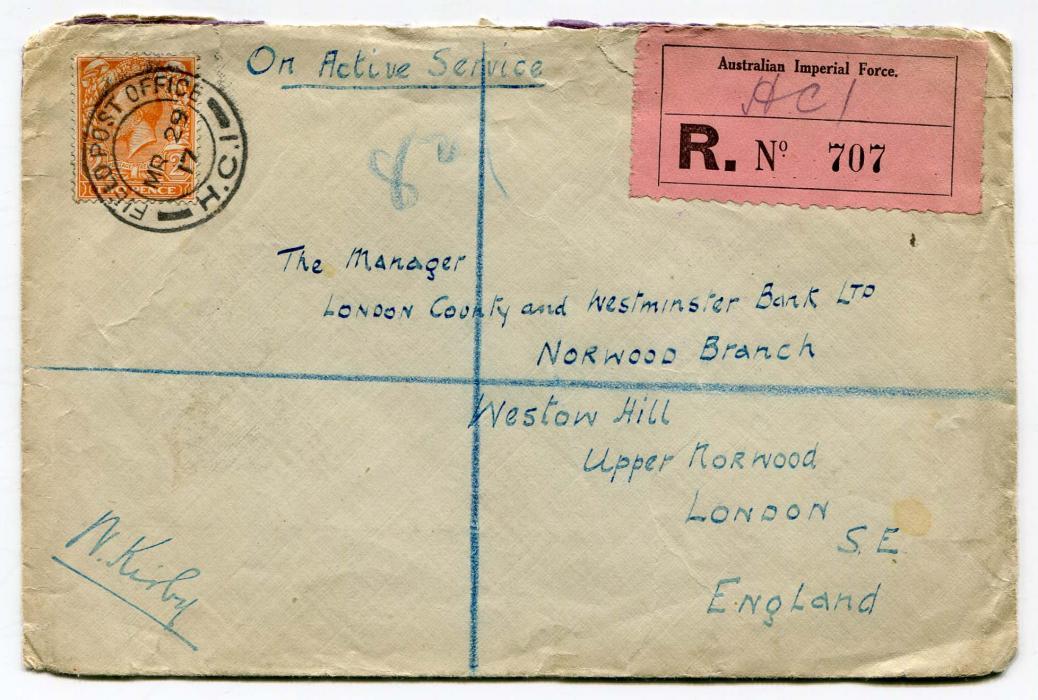 On Active Service
Australian Imperial Force.
HC1
R. Nº 707
FIELD POST OFFICE
MR 29
17
H.C.1
The Manager
London County and Westminster Bank LTD
Norwood Branch
Westow Hill
Upper Norwood
London
S.E.
England
W. Kirby